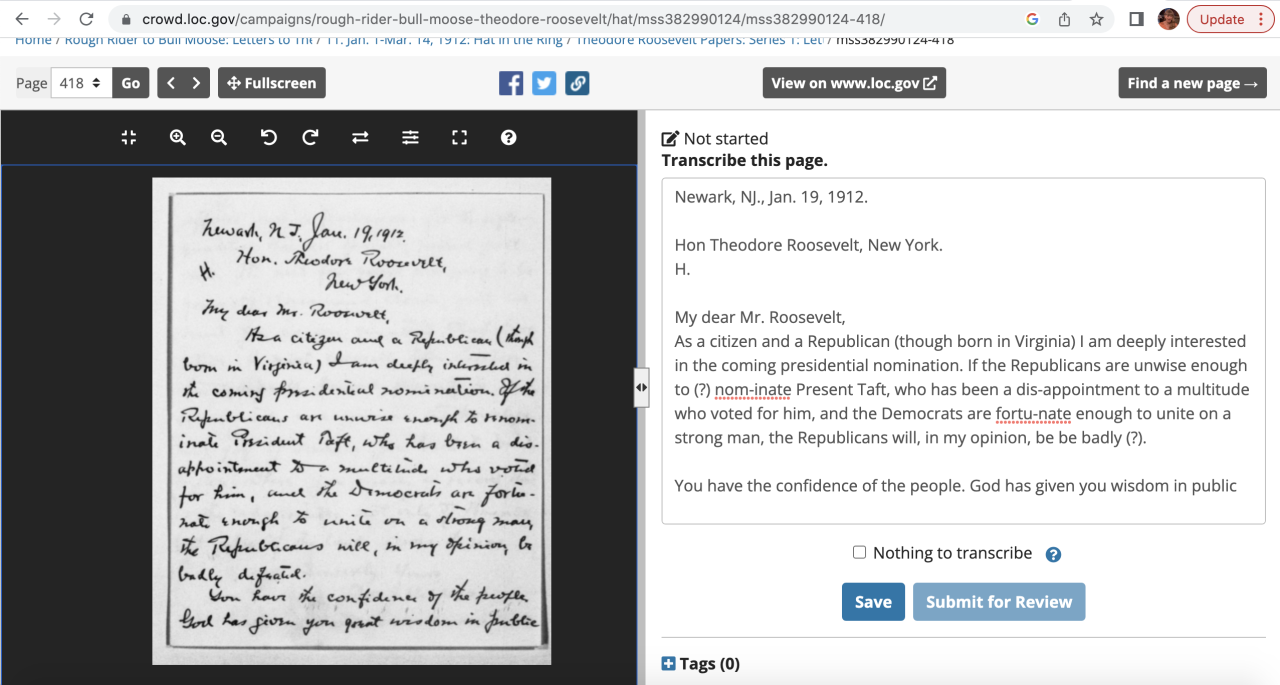 crowd.loc.gov/campaigns/rough-rider-bull-moose-theodore-roosevelt/hat/mss382990124/mss382990124-418/
Update
Home / Rough Rider to Bull Moose: Letters to The / 11. Jan. 1-Mar. 14, 1912: Hat in the Ring / Theodore Roosevelt Papers: Series 1: Let / mss382990124-418
Page 418 Go Fullscreen
View on www.loc.gov
Find a new page →
Newark, N J, Jan. 19, 1912.
Hon. Theodore Roosevelt,
H.
New York.
My dear Mr. Roosevelt,
As a citizen and a Republican (though
born in Virginia) I am deeply interested in
the coming presidential nomination. If the
Republicans are unwise enough to renom-
inate President Taft, who has been a dis-
appointment to a multitude who voted
for him, and the Democrats are fortu-
nate enough to unite on a strong man,
the Republicans will, in my opinion, be
badly defeated.
You have the confidence of the people
God has given you great wisdom in public
Not started
Transcribe this page.
Newark, NJ., Jan. 19, 1912.
Hon Theodore Roosevelt, New York.
H.
My dear Mr. Roosevelt,
As a citizen and a Republican (though born in Virginia) I am deeply interested
in the coming presidential nomination. If the Republicans are unwise enough
to (?) nom-inate Present Taft, who has been a dis-appointment to a multitude
who voted for him, and the Democrats are fortu-nate enough to unite on a
strong man, the Republicans will, in my opinion, be be badly (?).
You have the confidence of the people. God has given you wisdom in public
Nothing to transcribe
Save
Submit for Review
Tags (0)